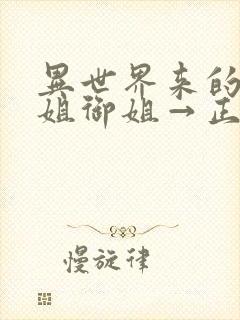 異世界来的
姐御姐→正
慢旋律